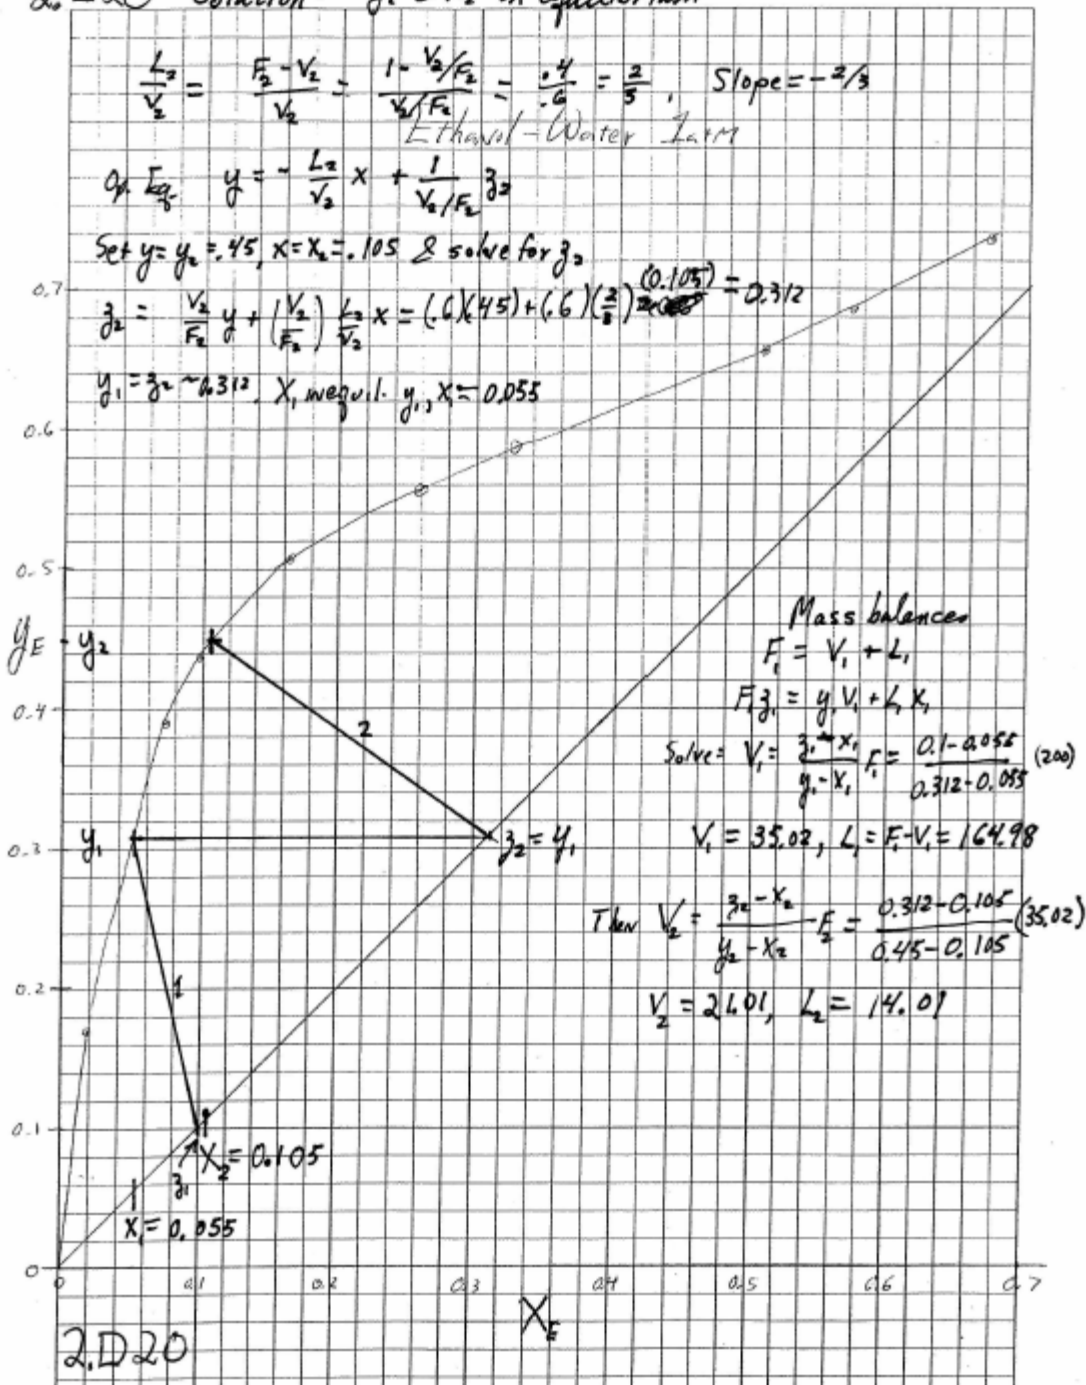 Solution
equilibrium
L₂/V₂ = (F₂ - V₂)/V₂ = (1 - V₂/F₂)/(V₂/F₂) = .4/.6 = 2/3, Slope = - 2/3
Ethanol - Water 1 atm
Op. Eq. y = - L₂/V₂ x + 1/(V₂/F₂) z₂
Set y = y₂ = .45, x = x₂ = .105 & solve for z₂
z₂ = V₂/F₂ y + (V₂/F₂) L₂/V₂ x = (.6)(.45) + (.6)(2/3)(0.105) = 0.312
y₁ = z₂ ~ 0.312. X₁ in equil. y₁, X₁ = 0.055
0.7
0.6
0.5
y_E
y₂
0.4
2
y₁
0.3
z₂ = y₁
0.2
1
0.1
X₂ = 0.105
z₁
X₁ = 0.055
0
Mass balances
F₁ = V₁ + L₁
F₁z₁ = y₁V₁ + L₁X₁
Solve = V₁ = (z₁ - x₁)/(y₁ - x₁) F₁ = (0.1 - 0.055)/(0.312 - 0.055) (200)
V₁ = 35.02, L₁ = F₁ - V₁ = 164.98
Then V₂ = (z₂ - x₂)/(y₂ - x₂) F₂ = (0.312 - 0.105)/(0.45 - 0.105) (35.02)
V₂ = 21.01, L₂ = 14.01
0 0.1 0.2 0.3 0.4 0.5 0.6 0.7
X_E
2.D20